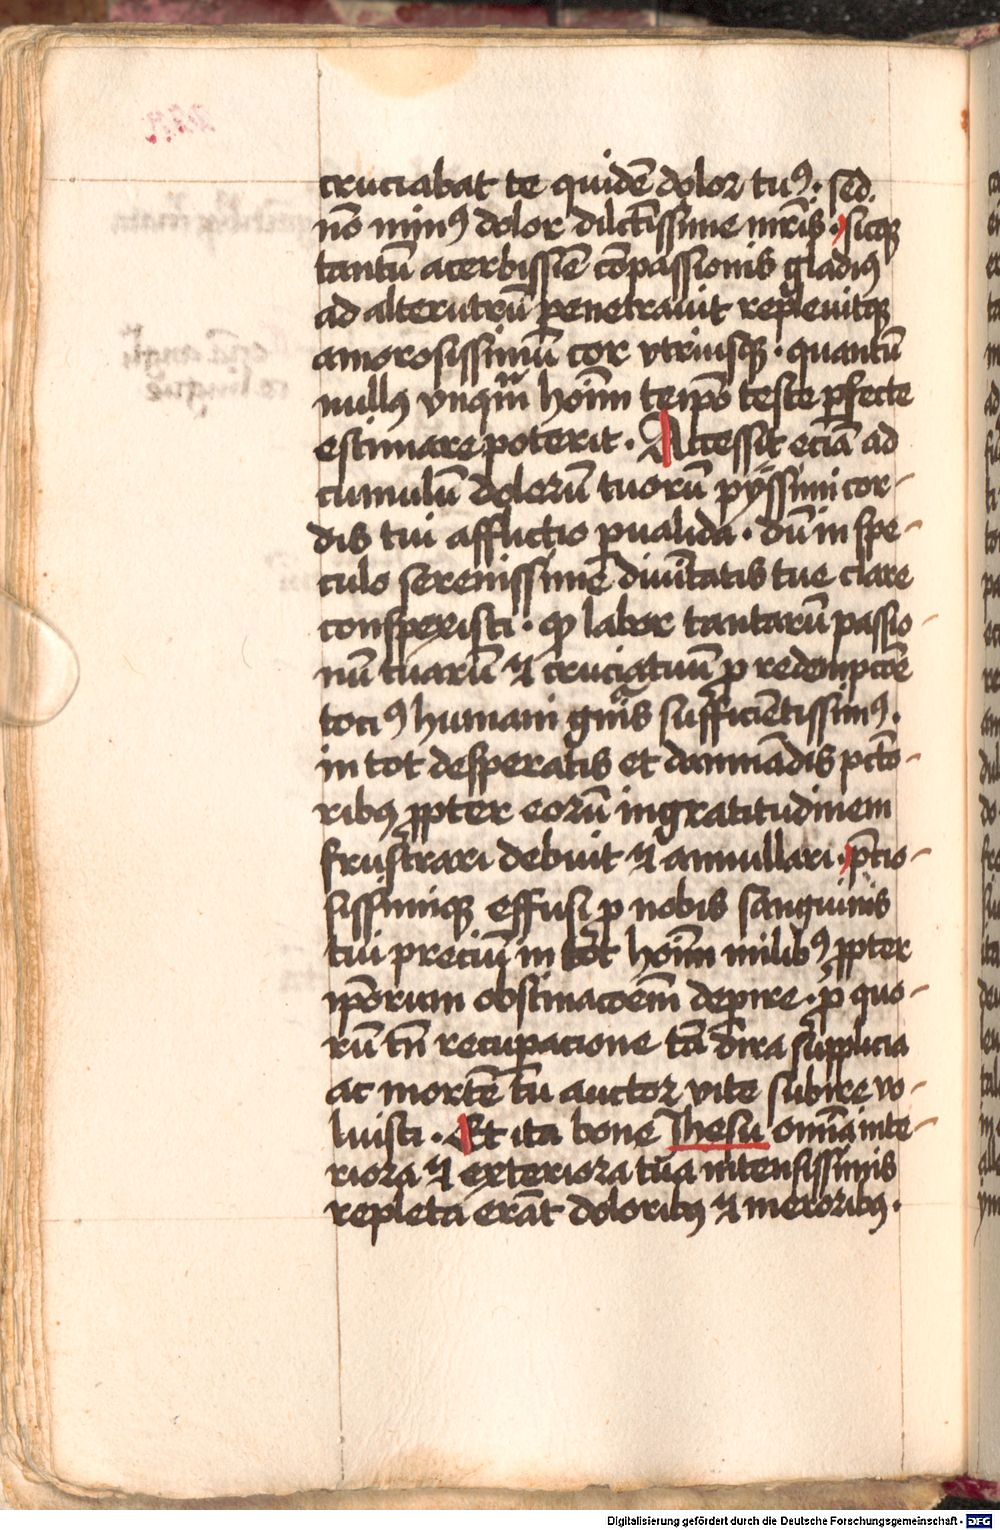 cruciabat te quidē dolor tuꝰ · sed
nō minꝰ dolor dilctīssime mr̄is · sicqꝫ
tantū acerbissīe cōpassionis gladiꝰ
ad alterutrū penetrauit repleuitqꝫ
amorosissimū cor vtriusqꝫ · quantū
nullꝰ vnqm̄ hoīm teip̄o teste ꝑfecte
estimare poterit · Accessit eciā ad
cumulū dolorū tuorū pyissimi cor-
dis tui afflictio p̄ualida · dū in spe-
culo serenissime diuītatis tue clare
conspexisti · ꝙ labor tantarū passio-
nū tuarū ⁊ cruciatuū ꝓ redempcōe
tociꝰ humani gn̄is sufficiētissimꝰ ·
in tot desperatis et damnādis pctō-
ribꝰ ꝓpter eorū ingratitudinem
frustrari debuit ⁊ annullari · p̄cio-
sissimiqꝫ effusi ꝓ nobis sanguinis
tui preciū in tot hoīm milibꝰ ꝓpter
ip̄orum obstinacōem̄ deperire · ꝓ quo-
rū tn̄ recuperacione tā dira supplicia
ac mortē tu auctor vite subire vo-
luisti · Et ita bone Ihesu om̄ia inte-
riora ⁊ exteriora tua intensissimis
repleta erāt doloribꝰ ⁊ meroribꝰ ·
Digitalisierung gefördert durch die Deutsche Forschungsgemeinschaft - DFG